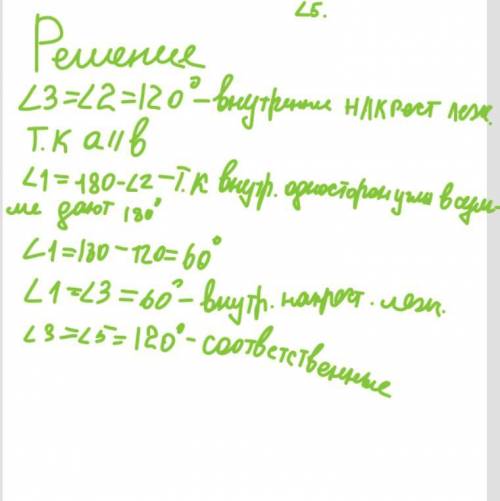 ∠5.
Решение
∠3=∠2=120° - внутренние н/крест леж.
Т.К a||b
∠1=180-∠2-Т.К внутр. односторон углы в сум-
ме дают 180°
∠1=180-120=60°
∠1=∠3=60° - внутр. накрест. леж.
∠3=∠5=120° - соответственные